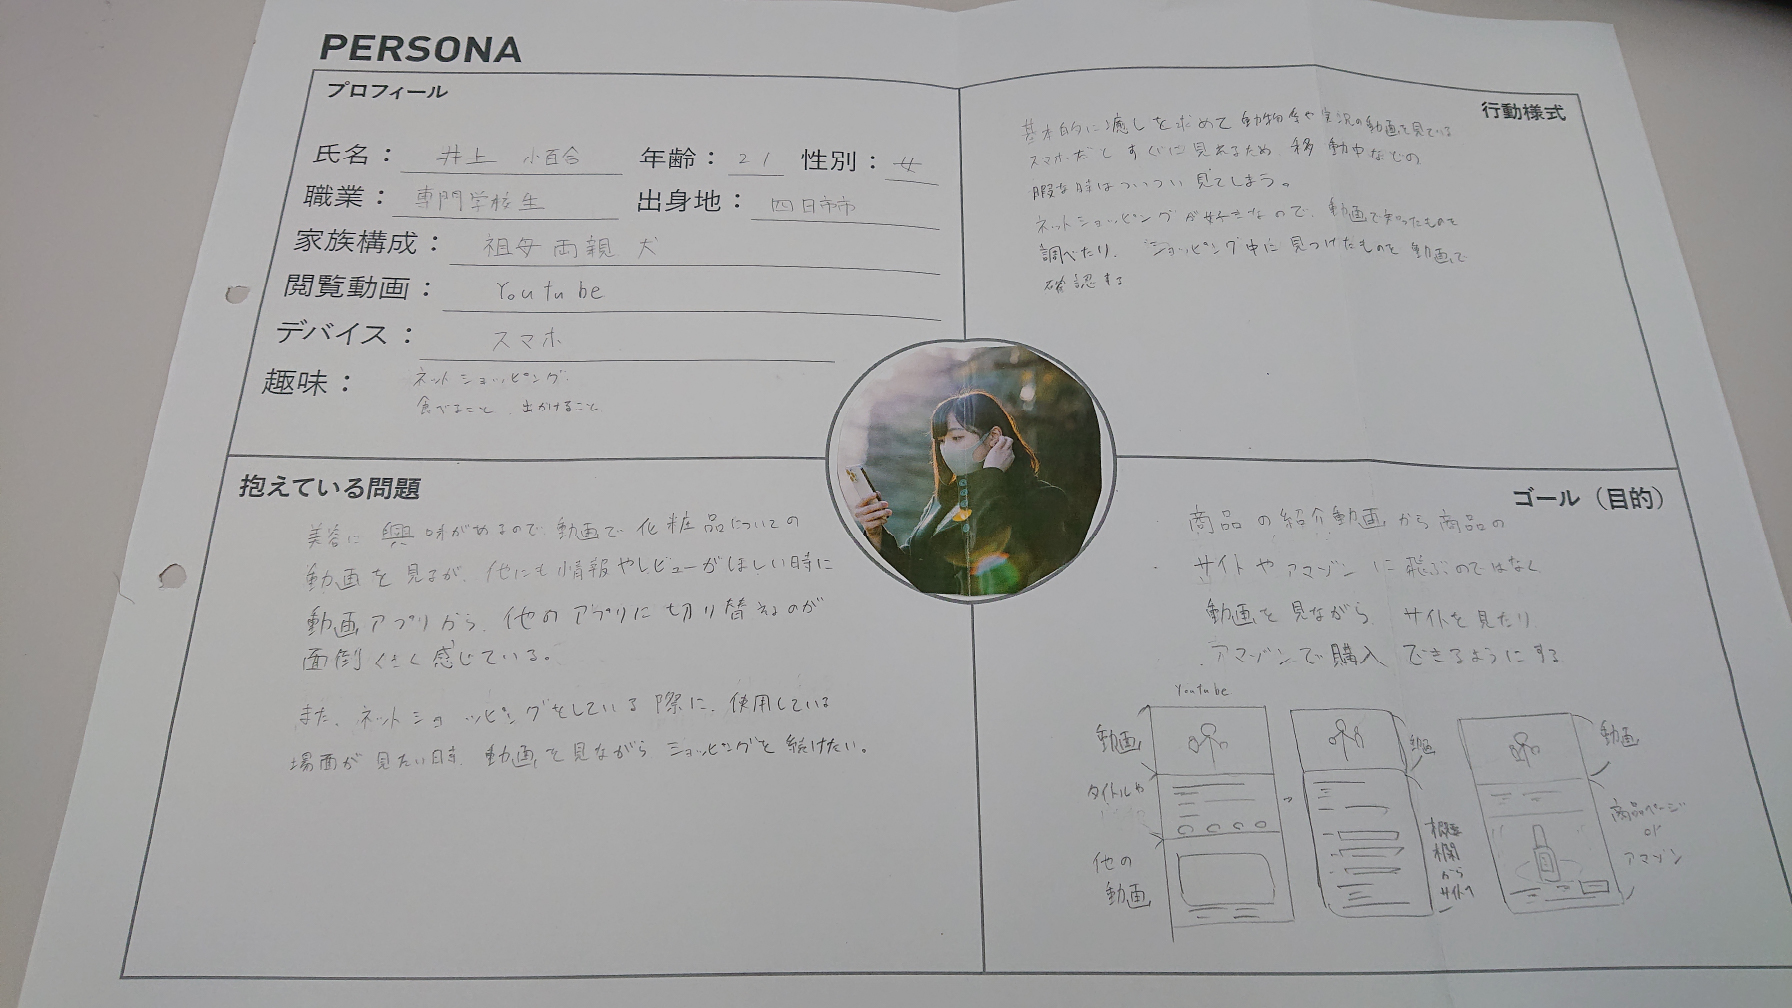 PERSONA
プロフィール
氏名： 井上 小百合 年齢： 21 性別： 女
職業： 専門学校生 出身地： 四日市市
家族構成： 祖母 両親 犬
閲覧動画： Youtube
デバイス： スマホ
趣味： ネットショッピング
食べること 出かけること
行動様式
基本的に癒しを求めて動物系や実況の動画を見ている
スマホだとすぐに見れるため 移動中などの
暇な時はついつい見てしまう。
ネットショッピングが好きなので、動画で知ったものを
調べたり、ショッピング中に見つけたものを動画で
確認する
抱えている問題
美容に興味があるので動画で化粧品についての
動画を見るが、他にも情報やレビューがほしい時に
動画アプリから、他のアプリに切り替えるのが
面倒くさく感じている。
また、ネットショッピングをしている際に、使用している
場面が見たい時、動画を見ながらショッピングを続けたい。
ゴール（目的）
商品の紹介動画から商品の
サイトやアマゾンに飛ぶのではなく
動画を見ながら サイトを見たり
アマゾンで購入できるようにする
Youtube
動画
タイトルや
他の
動画
動画
概要
欄
から
サイトへ
動画
商品ページ
or
アマゾン